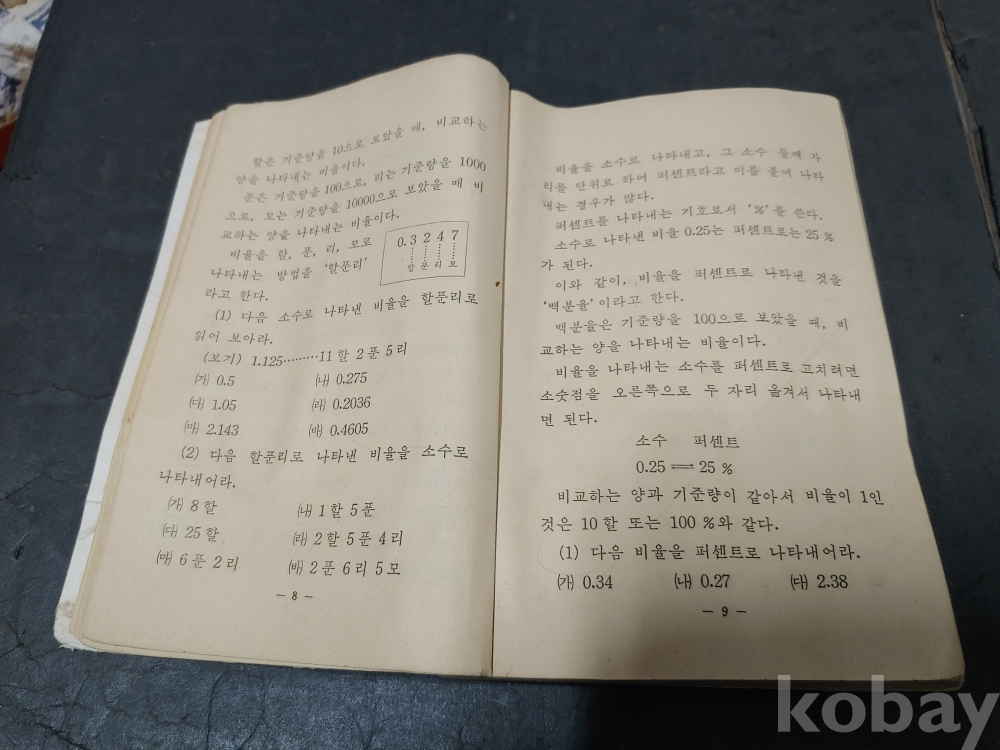 할은 기준량을 10으로 보았을 때, 비교하는
양을 나타내는 비율이다.
푼은 기준량을 100으로, 리는 기준량을 1000
으로, 모는 기준량을 10000으로 보았을 때 비
교하는 양을 나타내는 비율이다.
비율을 할, 푼, 리, 모로
나타내는 방법을 '할푼리'
라고 한다.
0.3 2 4 7
할 푼 리 모
(1) 다음 소수로 나타낸 비율을 할푼리로
읽어 보아라.
(보기) 1.125………11 할 2 푼 5 리
㈎ 0.5 ㈏ 0.275
㈐ 1.05 ㈑ 0.2036
㈒ 2.143 ㈓ 0.4605
(2) 다음 할푼리로 나타낸 비율을 소수로
나타내어라.
㈎ 8 할 ㈏ 1 할 5 푼
㈐ 25 할 ㈑ 2 할 5 푼 4 리
㈒ 6 푼 2 리 ㈓ 2 푼 6 리 5 모
— 8 —
비율을 소수로 나타내고, 그 소수 둘째 자
리를 단위로 하여 퍼센트라고 이름 붙여 나타
내는 경우가 많다.
퍼센트를 나타내는 기호로서 '%'를 쓴다.
소수로 나타낸 비율 0.25는 퍼센트로는 25 %
가 된다.
이와 같이, 비율을 퍼센트로 나타낸 것을
'백분율'이라고 한다.
백분율은 기준량을 100으로 보았을 때, 비
교하는 양을 나타내는 비율이다.
비율을 나타내는 소수를 퍼센트로 고치려면
소숫점을 오른쪽으로 두 자리 옮겨서 나타내
면 된다.
소수 퍼센트
0.25 ⇌ 25 %
비교하는 양과 기준량이 같아서 비율이 1인
것은 10 할 또는 100 %와 같다.
(1) 다음 비율을 퍼센트로 나타내어라.
㈎ 0.34 ㈏ 0.27 ㈐ 2.38
— 9 —
kobay